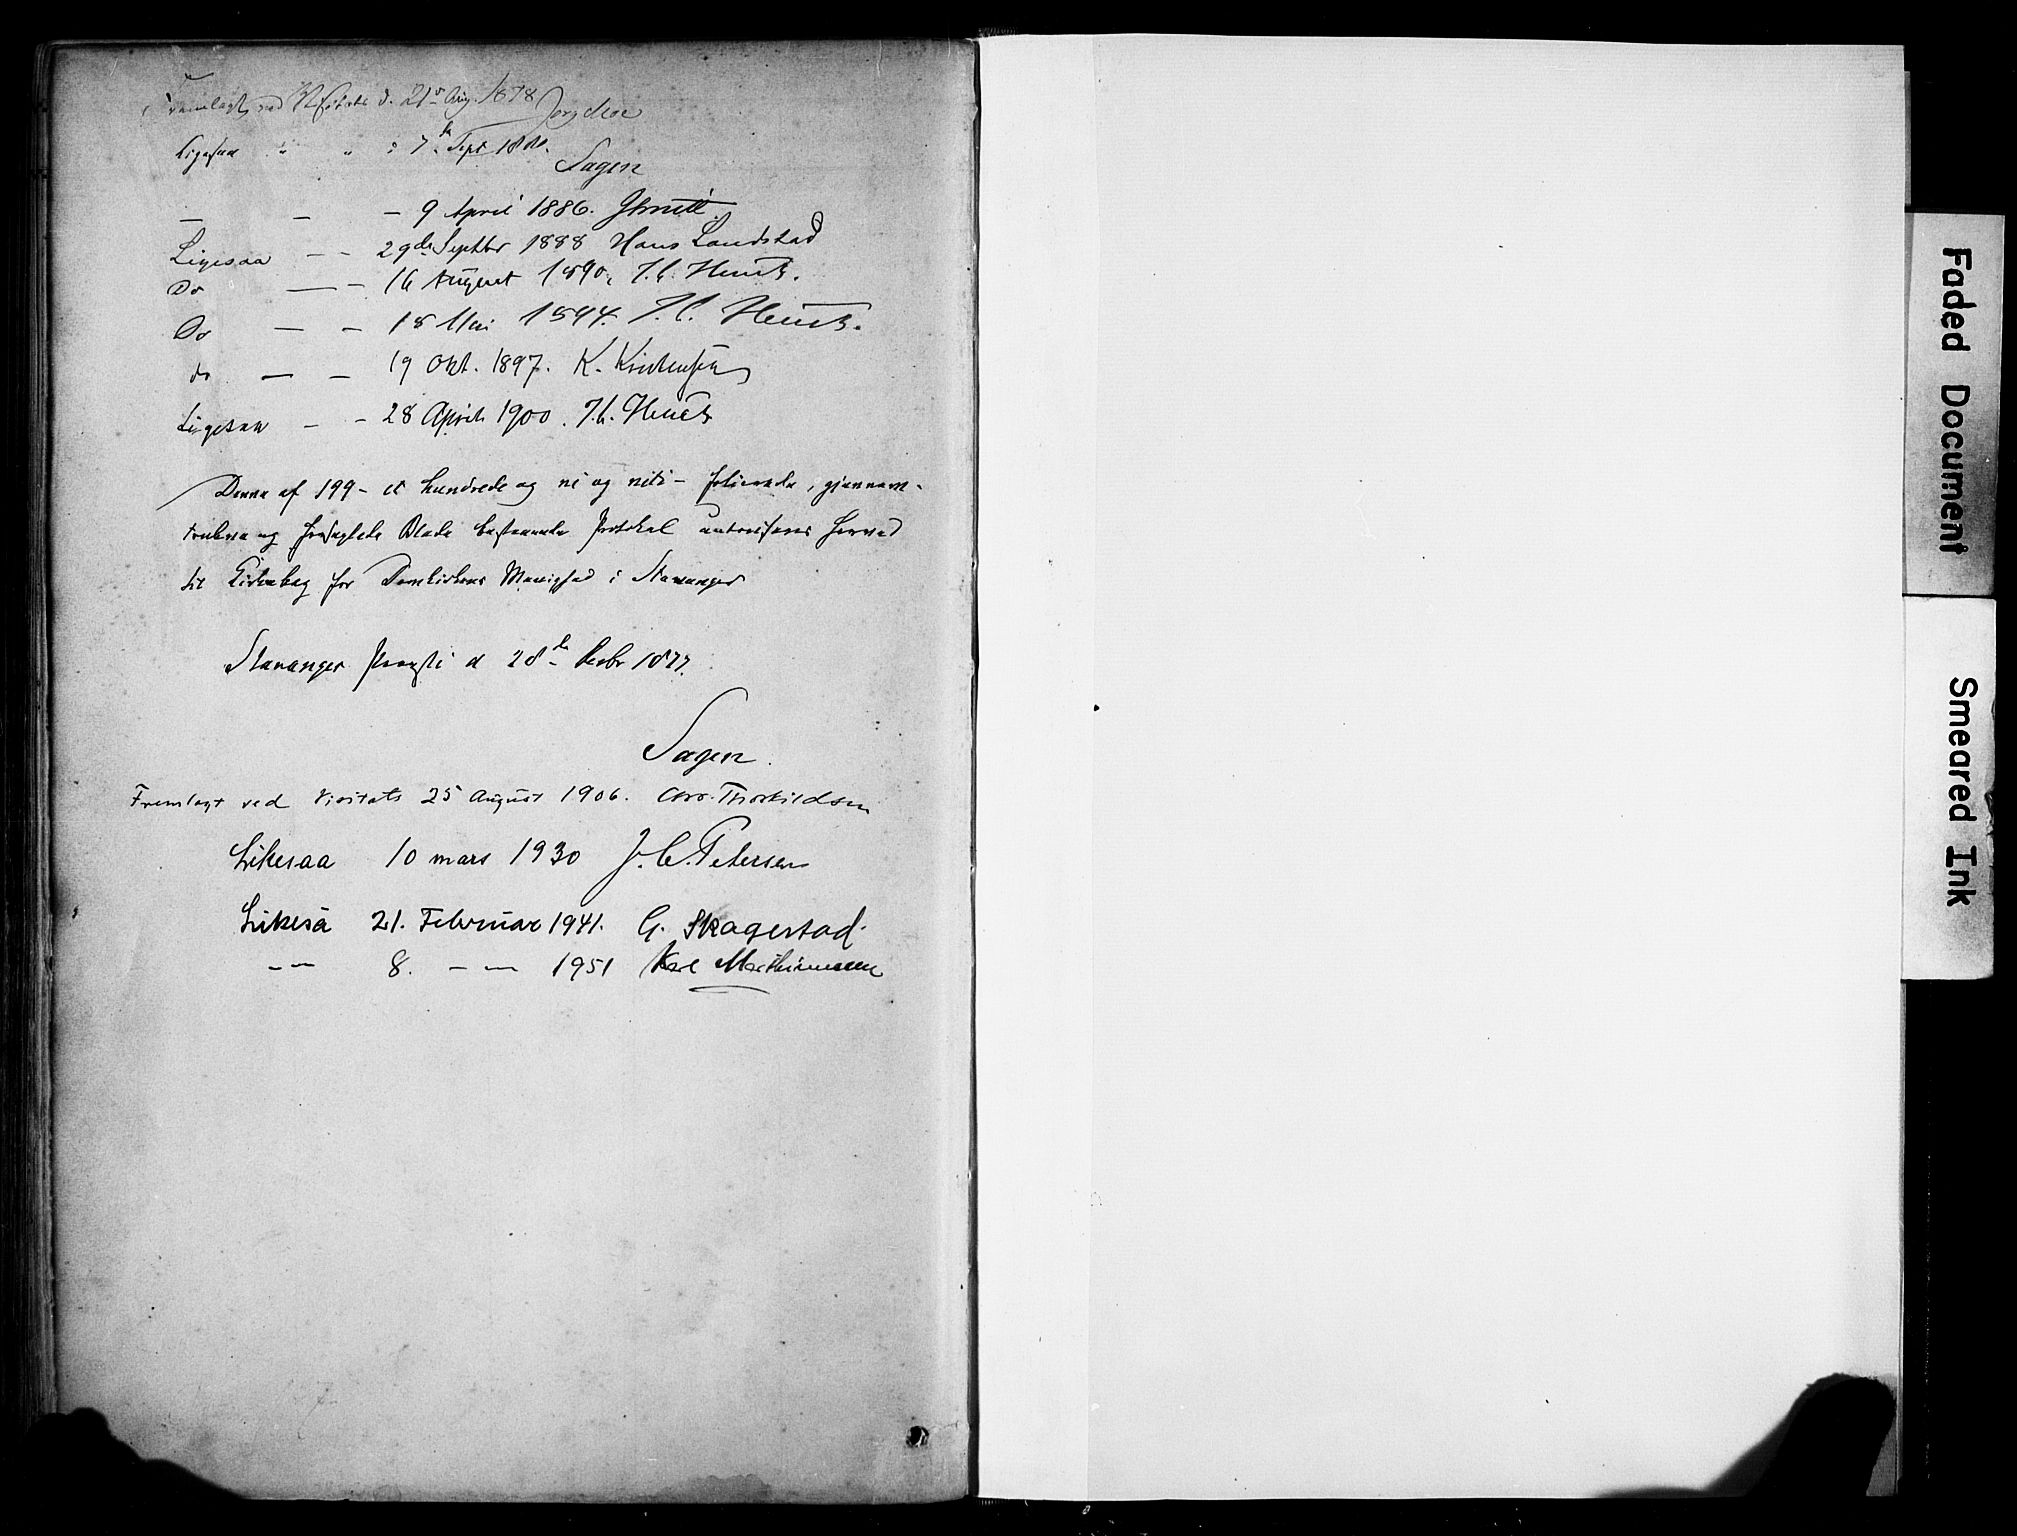 Fremlagt ved Visitats d. 21de Aug. 1878 Jørg Moe
Ligesaa " " d 7de Sept 188
Sagen
— — — 9 April 1886.
Ligesaa — — 29de Septbr 1888 Hans Landstad
Do — — 16 August 1890, J. C. Heuch.
Do — — 18 Mai 1894. J. C. Heuch.
do — — 19 Okt. 1897. K. Kristensen
Ligesaa — — 28 April 1900. J. C. Heuch
Denne af 199 - et hundrede og ni og niti - folierede, gjennem-
trukne og forseglede Blade bestaaende Protokol autoriseres herved
til Kirkebog for Domkirkens Menighed i Stavanger
Stavanger Provsti d 28de Decbr 1877.
Sagen.
Fremlagt ved Visitats 25 August 1906. Chr. Thorkildsen
Likesaa 10 mars 1930 J. C. Petersen
Likeså 21. Februar 1941. G. Skagestad.
— — 8. — — 1951 Karl Marthinussen
Faded Document
Smeared Ink